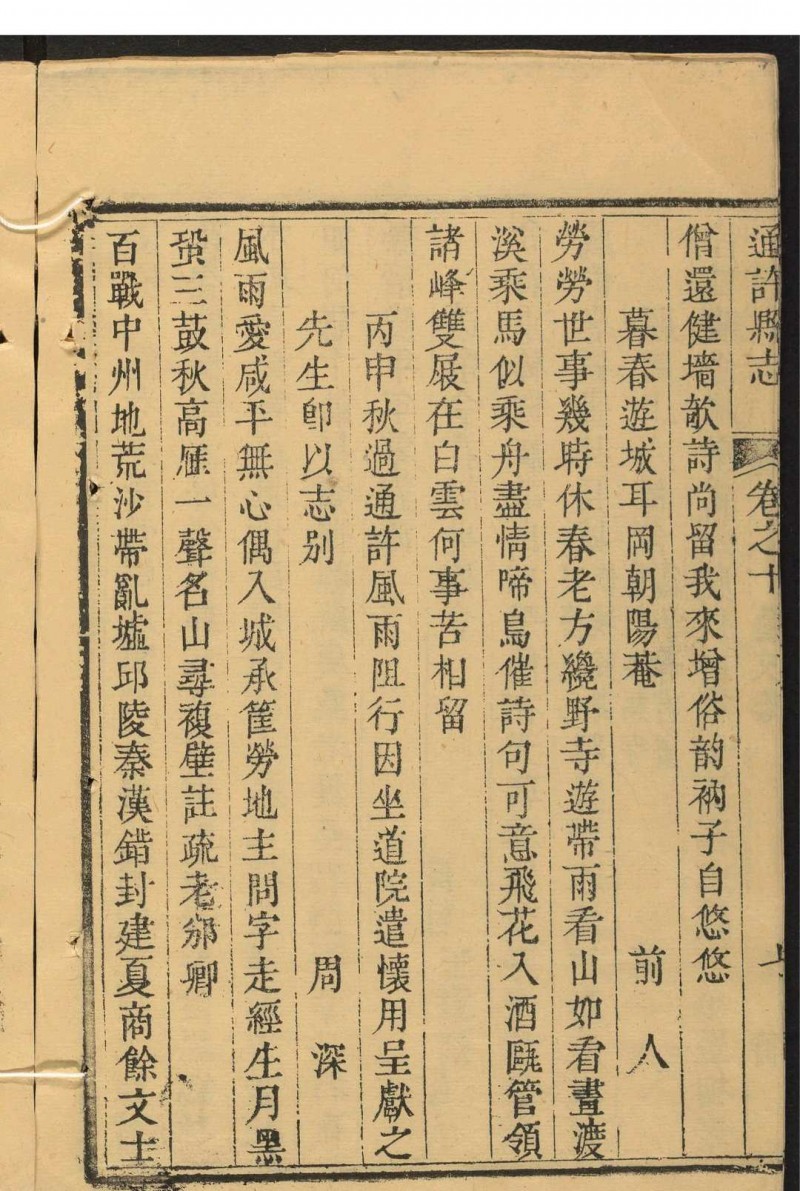 通許縣志 卷之十
僧還健墻欹詩尚留我來增俗韵衲子自悠悠
暮春遊城耳岡朝陽菴 前人
勞勞世事幾時休春老方纔野寺遊帶雨看山如看畫渡
溪乘馬似乘舟盡情啼鳥催詩句可意飛花入酒甌管領
諸峰雙屐在白雲何事苦相留
丙申秋過通許風雨阻行因坐道院遣懷用呈獻之
先生卽以志別 周深
風雨愛咸平無心偶入城承筐勞地主問字走經生月黑
蛩三鼓秋高雁一聲名山尋複壁註疏老邠卿
百戰中州地荒沙帶亂墟邱陵秦漢錯封建夏商餘文士